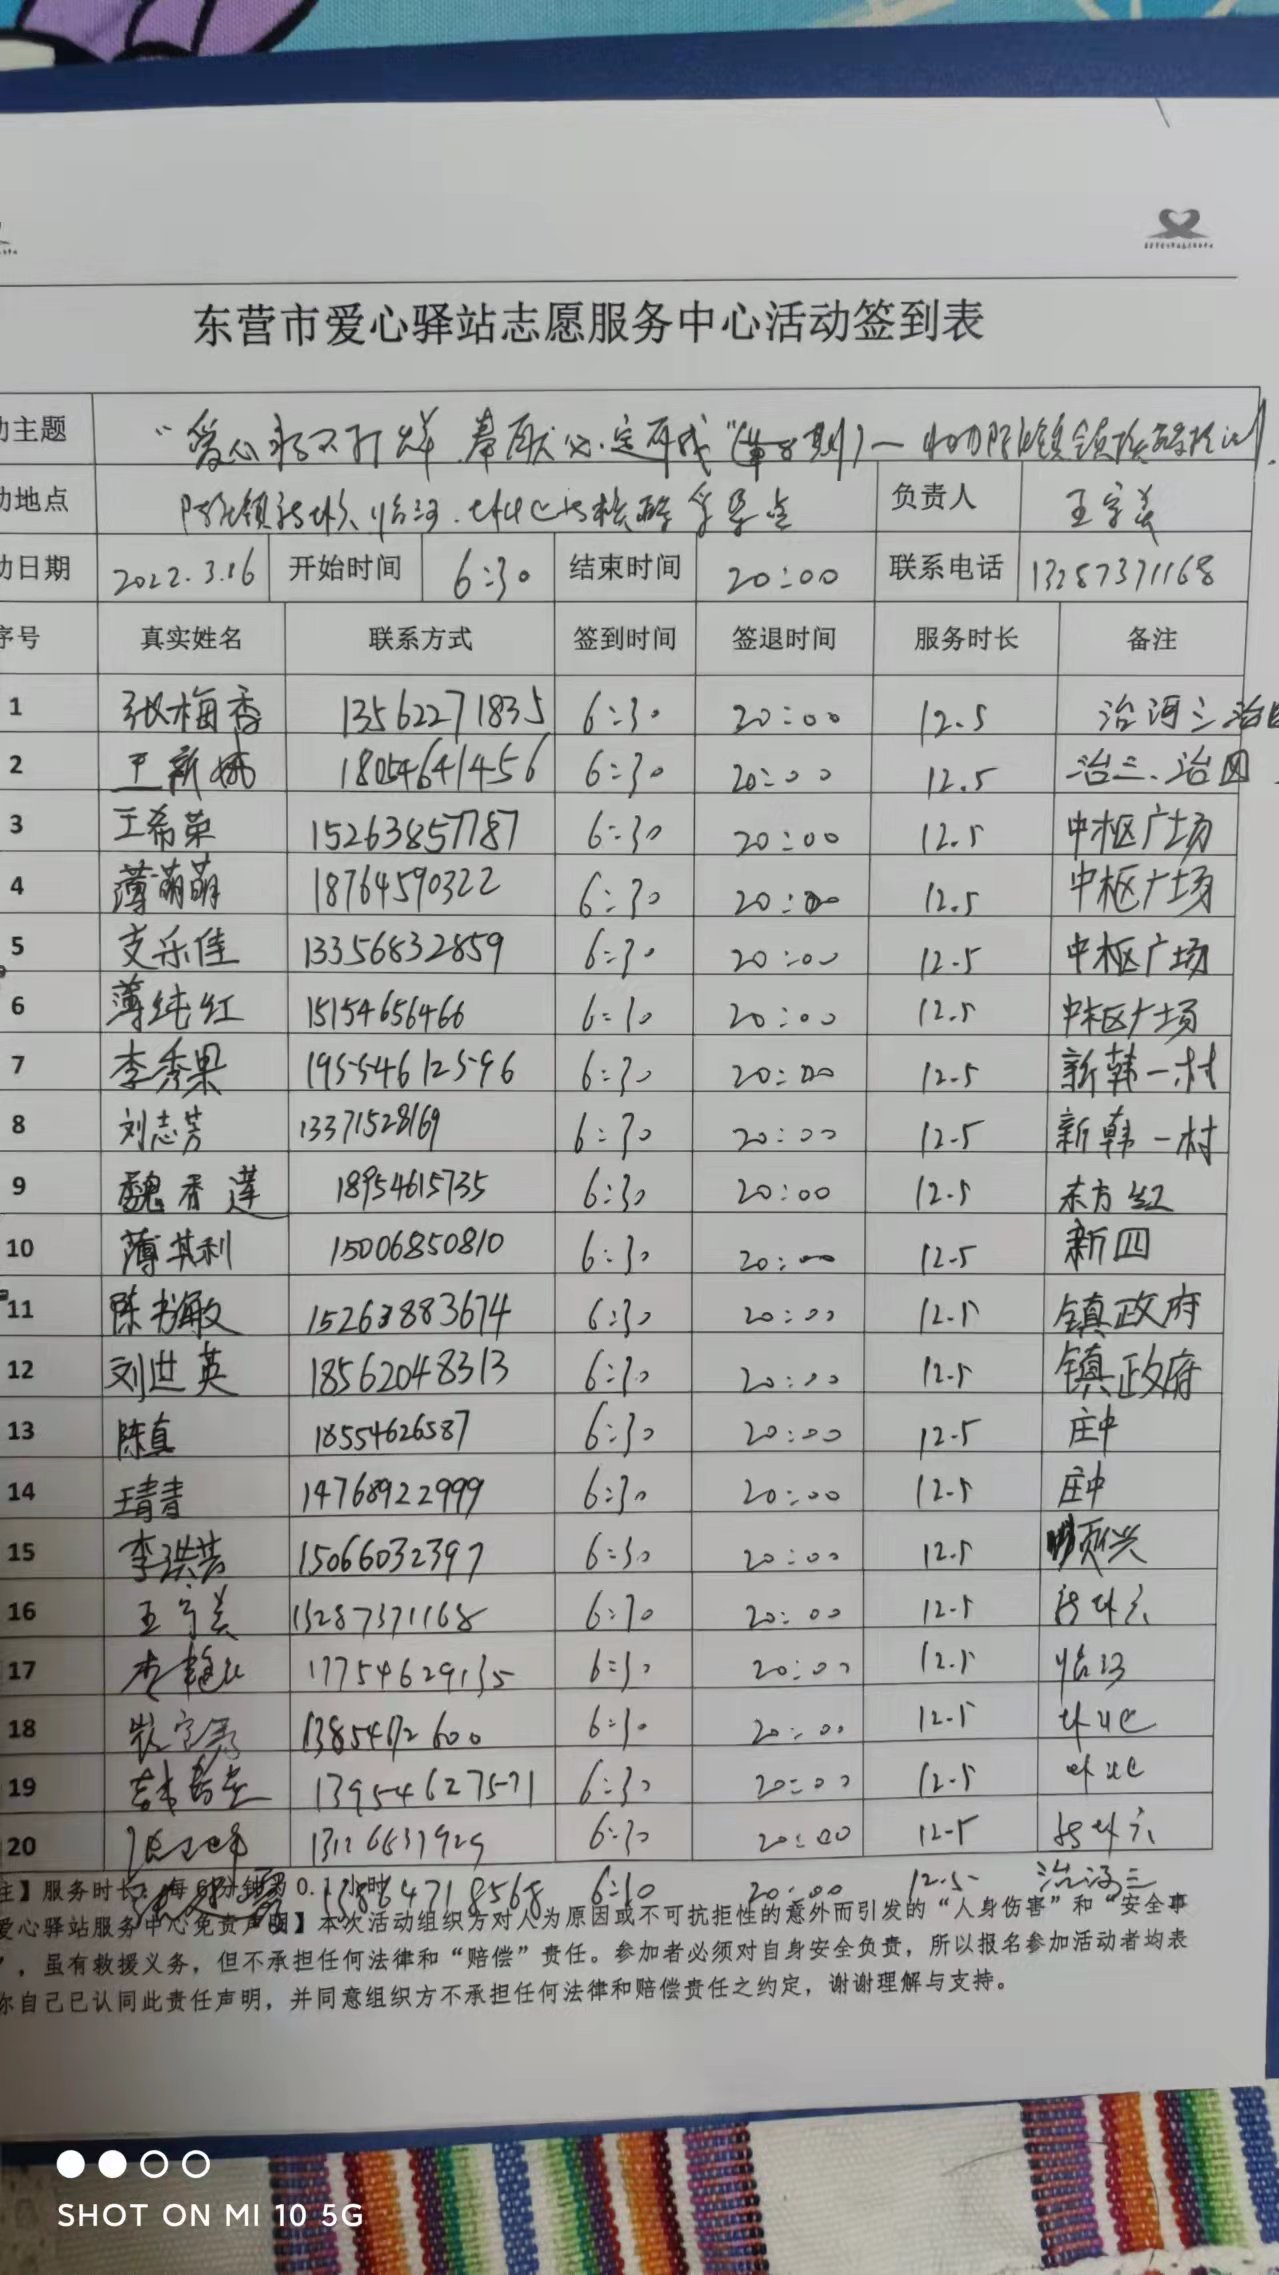 东营市爱心驿站志愿服务中心活动签到表
主题 "爱心永不打烊 奉献必定再成"
地点 负责人 王宇美
日期 2022.3.16 开始时间 6:30 结束时间 20:00 联系电话 13287371168
序号 真实姓名 联系方式 签到时间 签退时间 服务时长 备注
1 张梅香 13562271835 6:30 20:00 12.5 治河三治
2 王新娥 18054641456 6:30 20:00 12.5 治三、治四
3 王希荣 15263857787 6:30 20:00 12.5 中枢广场
4 薄萌萌 18764590322 6:30 20:00 12.5 中枢广场
5 支乐佳 13356832859 6:30 20:00 12.5 中枢广场
6 薄纯红 15154656466 6:30 20:00 12.5 中枢广场
7 李秀果 19554612596 6:30 20:00 12.5 新韩一村
8 刘志芳 13371528169 6:30 20:00 12.5 新韩一村
9 魏香莲 18954615735 6:30 20:00 12.5 东方红
10 薄其利 15006850810 6:30 20:00 12.5 新四
11 陈书敏 15263883674 6:30 20:00 12.5 镇政府
12 刘进英 18562048313 6:30 20:00 12.5 镇政府
13 陈真 18554626587 6:30 20:00 12.5 庄中
14 王青青 14768922999 6:30 20:00 12.5 庄中
15 李洪芳 15066032397 6:30 20:00 12.5 顺兴
16 王宇美 13287371168 6:30 20:00 12.5
17 17754629135 6:30 20:00 12.5
18 6:30 20:00 12.5
19 13954627571 6:30 20:00 12.5
20 6:30 20:00 12.5
13864718568 6:30 20:00 12.5 治河三
注】服务时长：每6分钟为0.1小时
爱心驿站服务中心免责声明】本次活动组织方对人为原因或不可抗拒性的意外而引发的“人身伤害”和“安全事
”，虽有救援义务，但不承担任何法律和“赔偿”责任。参加者必须对自身安全负责，所以报名参加活动者均表
你自己已认同此责任声明，并同意组织方不承担任何法律和赔偿责任之约定，谢谢理解与支持。
SHOT ON MI 10 5G